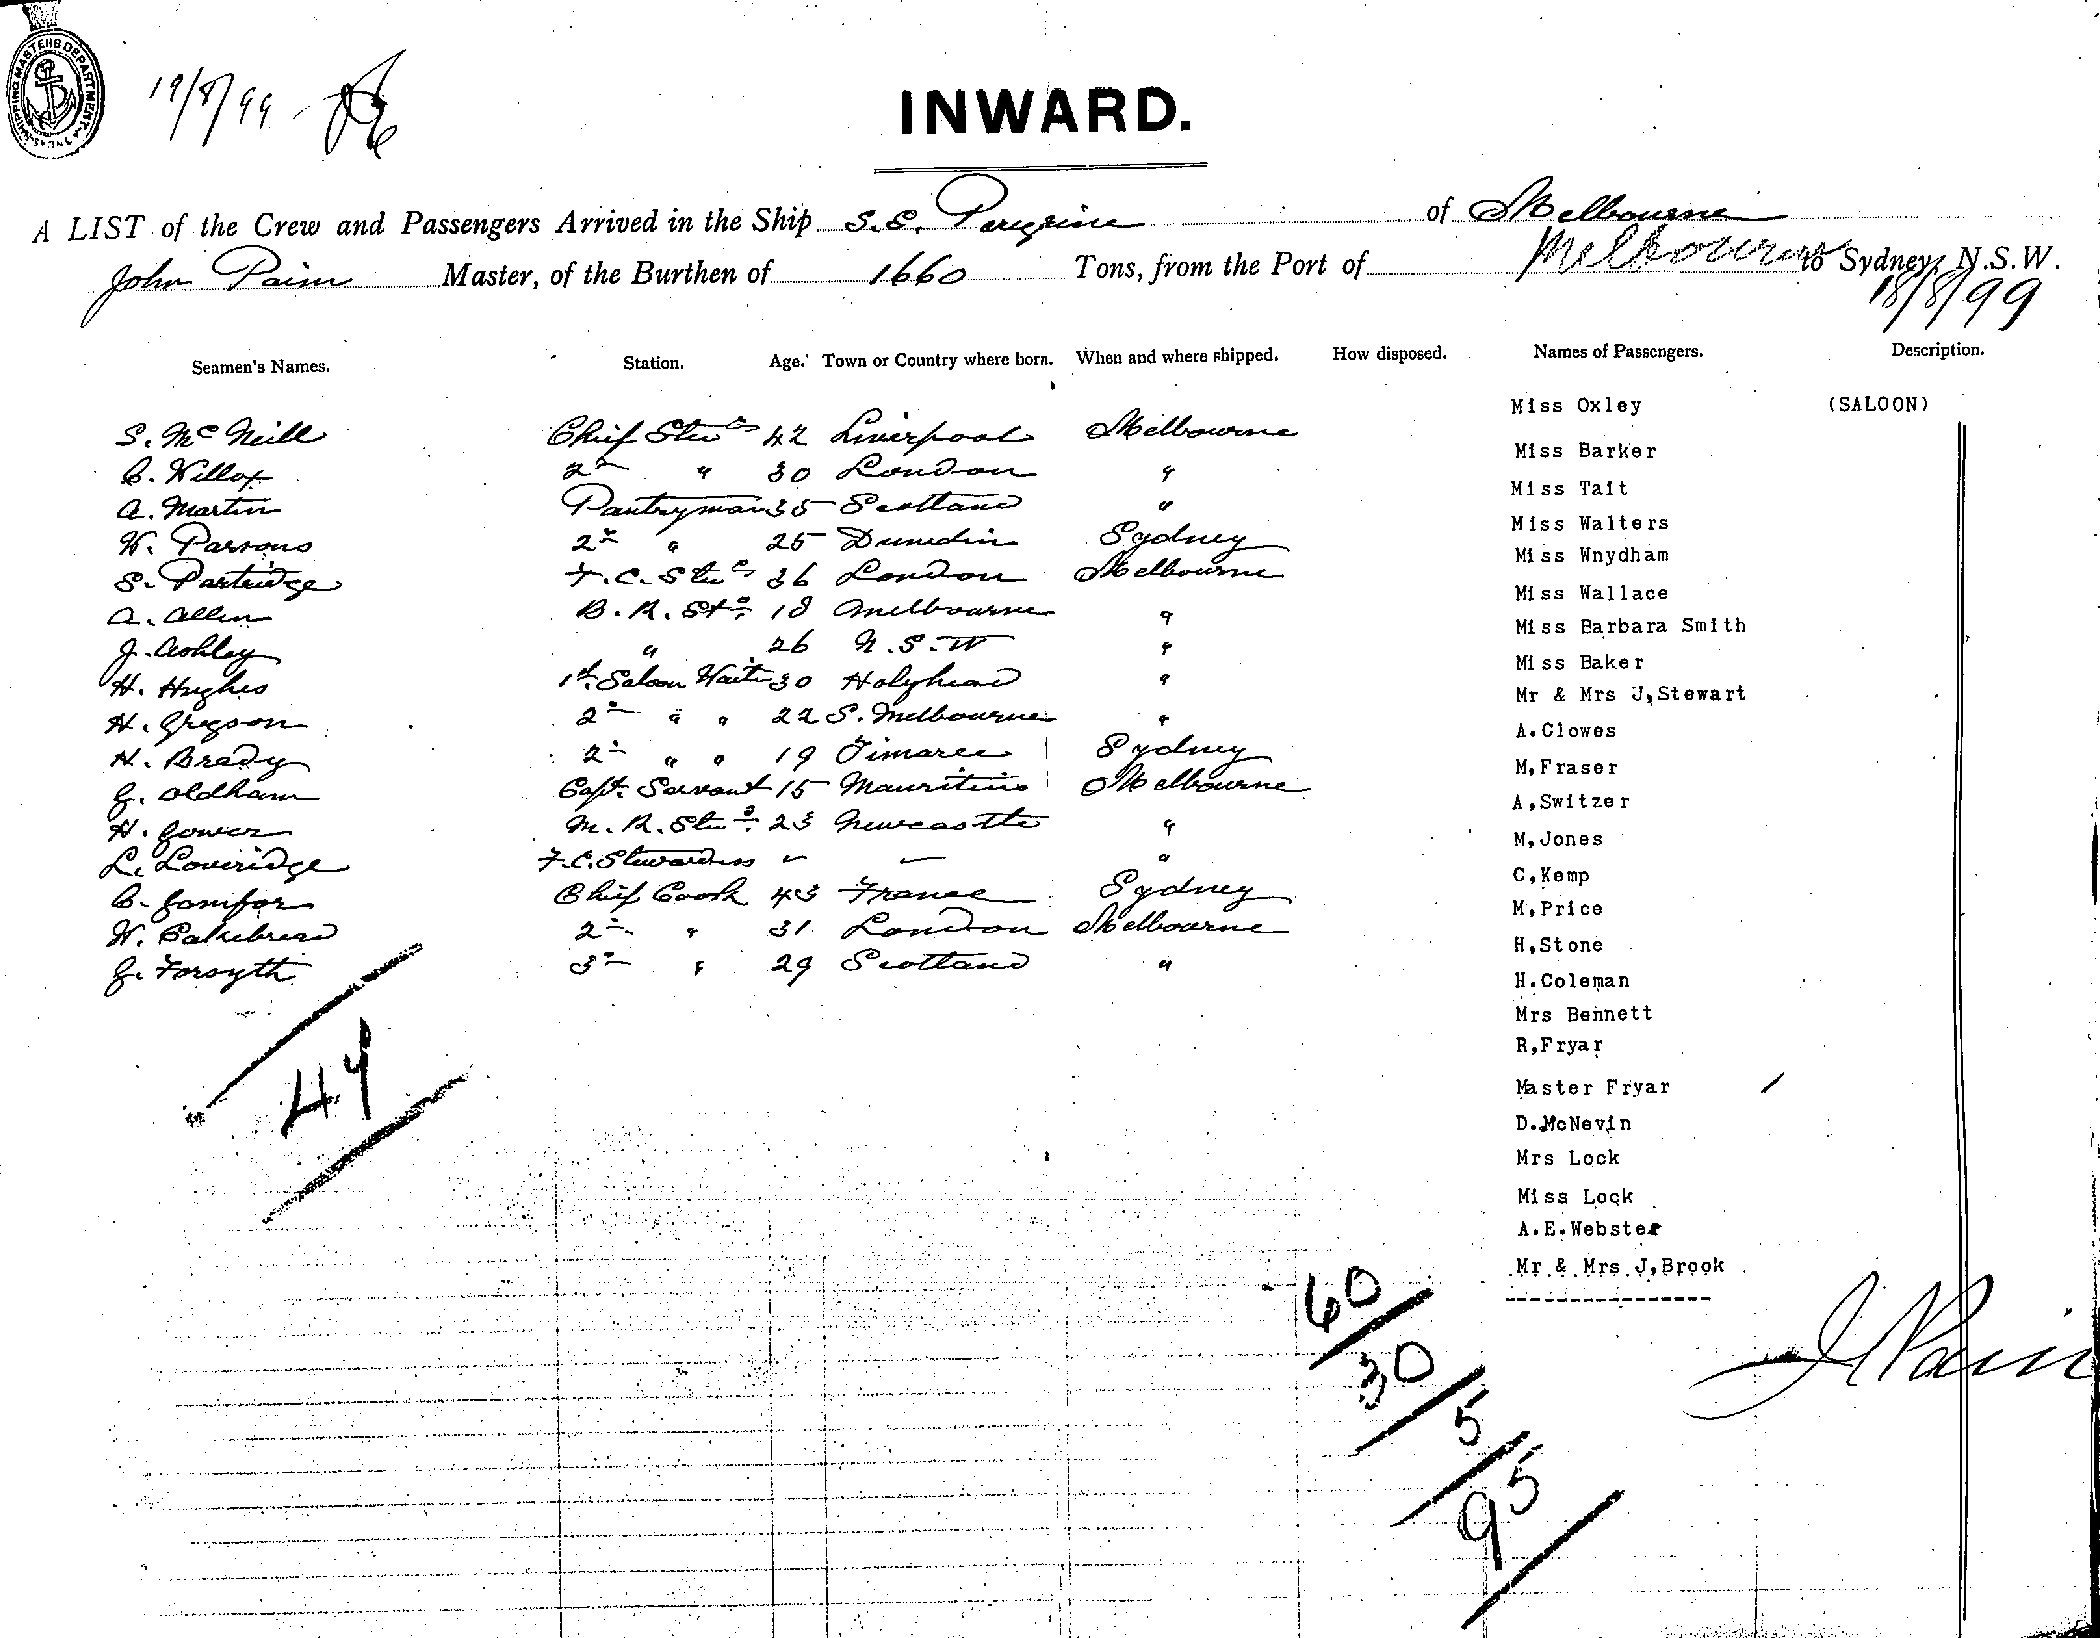 SHIPPING MASTERS DEPARTMENT
19/8/99
INWARD.
A LIST of the Crew and Passengers Arrived in the Ship S.S. Peregrine of Melbourne
John Pain Master, of the Burthen of 1660 Tons, from the Port of Melbourne to Sydney, N.S.W.
18/8/99
Seamen's Names. Station. Age. Town or Country where born. When and where shipped. How disposed. Names of Passengers. Description.
S. McNeill Chief Stwd 42 Liverpool Melbourne
C. Willox 2nd " 30 London "
A. Martin Pantryman 35 Scotland "
W. Parsons 2nd " 25 Dunedin Sydney
S. Partridge F.C. Stwd 36 London Melbourne
A. Allen B.R. Std 18 Melbourne "
J. Ashley " 26 N.S.W "
H. Hughes 1st Saloon Waiter 30 Holyhead "
H. Gregson 2nd " " 22 S. Melbourne "
H. Brady 2nd " " 19 Timaru Sydney
G. Oldham Capt. Servant 15 Mauritius Melbourne
H. Gower M.R. Stwd 23 Newcastle "
L. Loveridge F.C. Stewardess " — "
C. Chief Cook 43 France Sydney
W. Cakebread 2nd " 31 London Melbourne
G. Forsyth 3rd " 29 Scotland "
44
Miss Oxley (SALOON)
Miss Barker
Miss Tait
Miss Walters
Miss Wnydham
Miss Wallace
Miss Barbara Smith
Miss Baker
Mr & Mrs J,Stewart
A.Clowes
M,Fraser
A,Switzer
M,Jones
C,Kemp
M,Price
H,Stone
H.Coleman
Mrs Bennett
R,Fryar
Master Fryar
D.McNevin
Mrs Lock
Miss Lock
A.E.Webster
Mr & Mrs J,Brook
60
30
5
95
J Pain